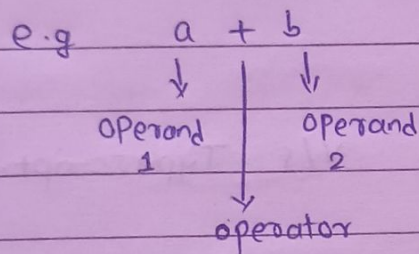 e.g a + b
operand operand
1 2
operator